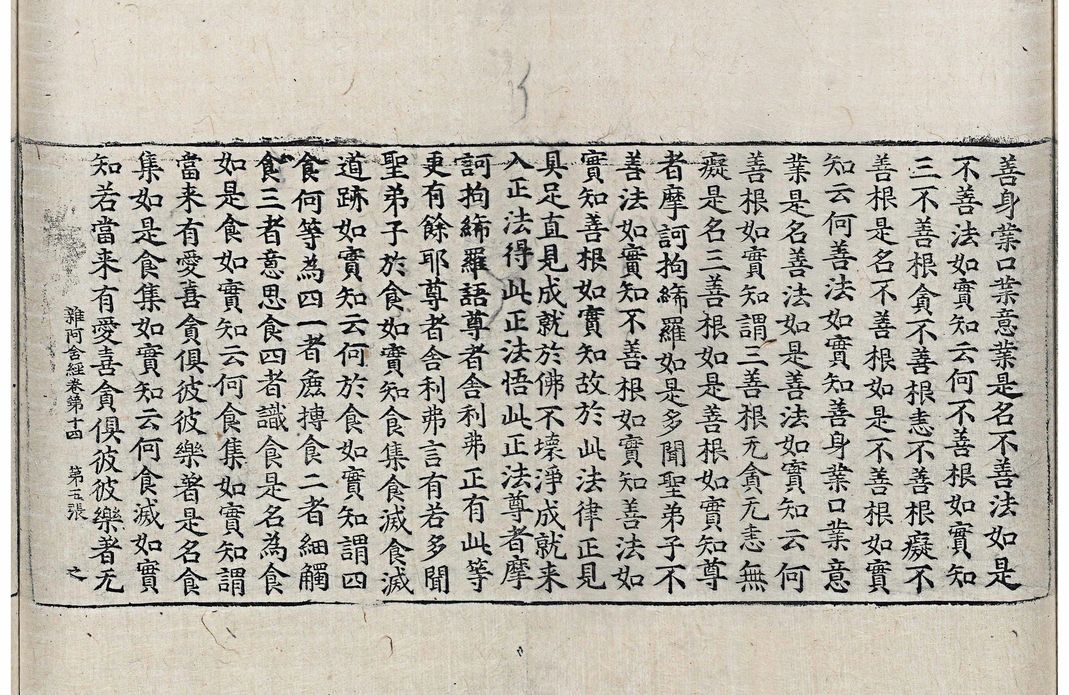 善身業口業意業是名不善法如是
不善法如實知云何不善根如實知
三不善根貪不善根恚不善根癡不
善根是名不善根如是不善根如實
知云何善法如實知善身業口業意
業是名善法如是善法如實知云何
善根如實知謂三善根无貪无恚無
癡是名三善根如是善根如實知尊
者摩訶拘絺羅如是多聞聖弟子不
善法如實知不善根如實知善法如
實知善根如實知故於此法律正見
具足直見成就於佛不壞淨成就来
入正法得此正法悟此正法尊者摩
訶拘絺羅語尊者舍利弗正有此等
更有餘耶尊者舍利弗言有若多聞
聖弟子於食如實知食集食滅食滅
道跡如實知云何於食如實知謂四
食何等為四一者麁摶食二者細觸
食三者意思食四者識食是名為食
如是食如實知云何食集如實知謂
當来有愛喜貪俱彼彼樂著是名食
集如是食集如實知云何食滅如實
知若當来有愛喜貪俱彼彼樂著无
雜阿含經卷第十四 第五張 之